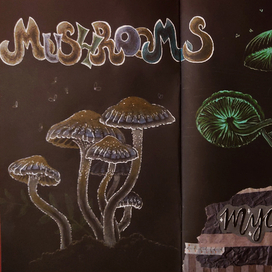 MUSHROOMS
myc